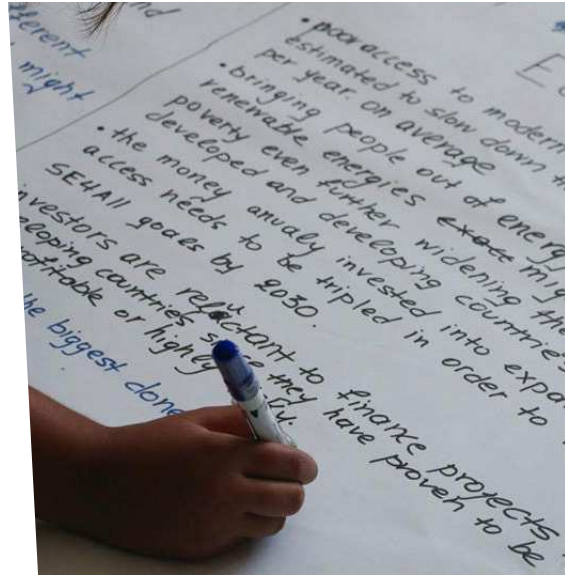 and
different
might
• poor access to modern
estimated to slow down th
per year. On average
• bringing people out of energy
renewable energies mig
poverty even further widening the
developed and developing countries
• the money anualy invested into expa
access needs to be tripled in order to
SE4All goals by 2030.
nvestors are reluctant to finance projects
eloping countries since they have proven to be
ofitable or highly
he biggest done